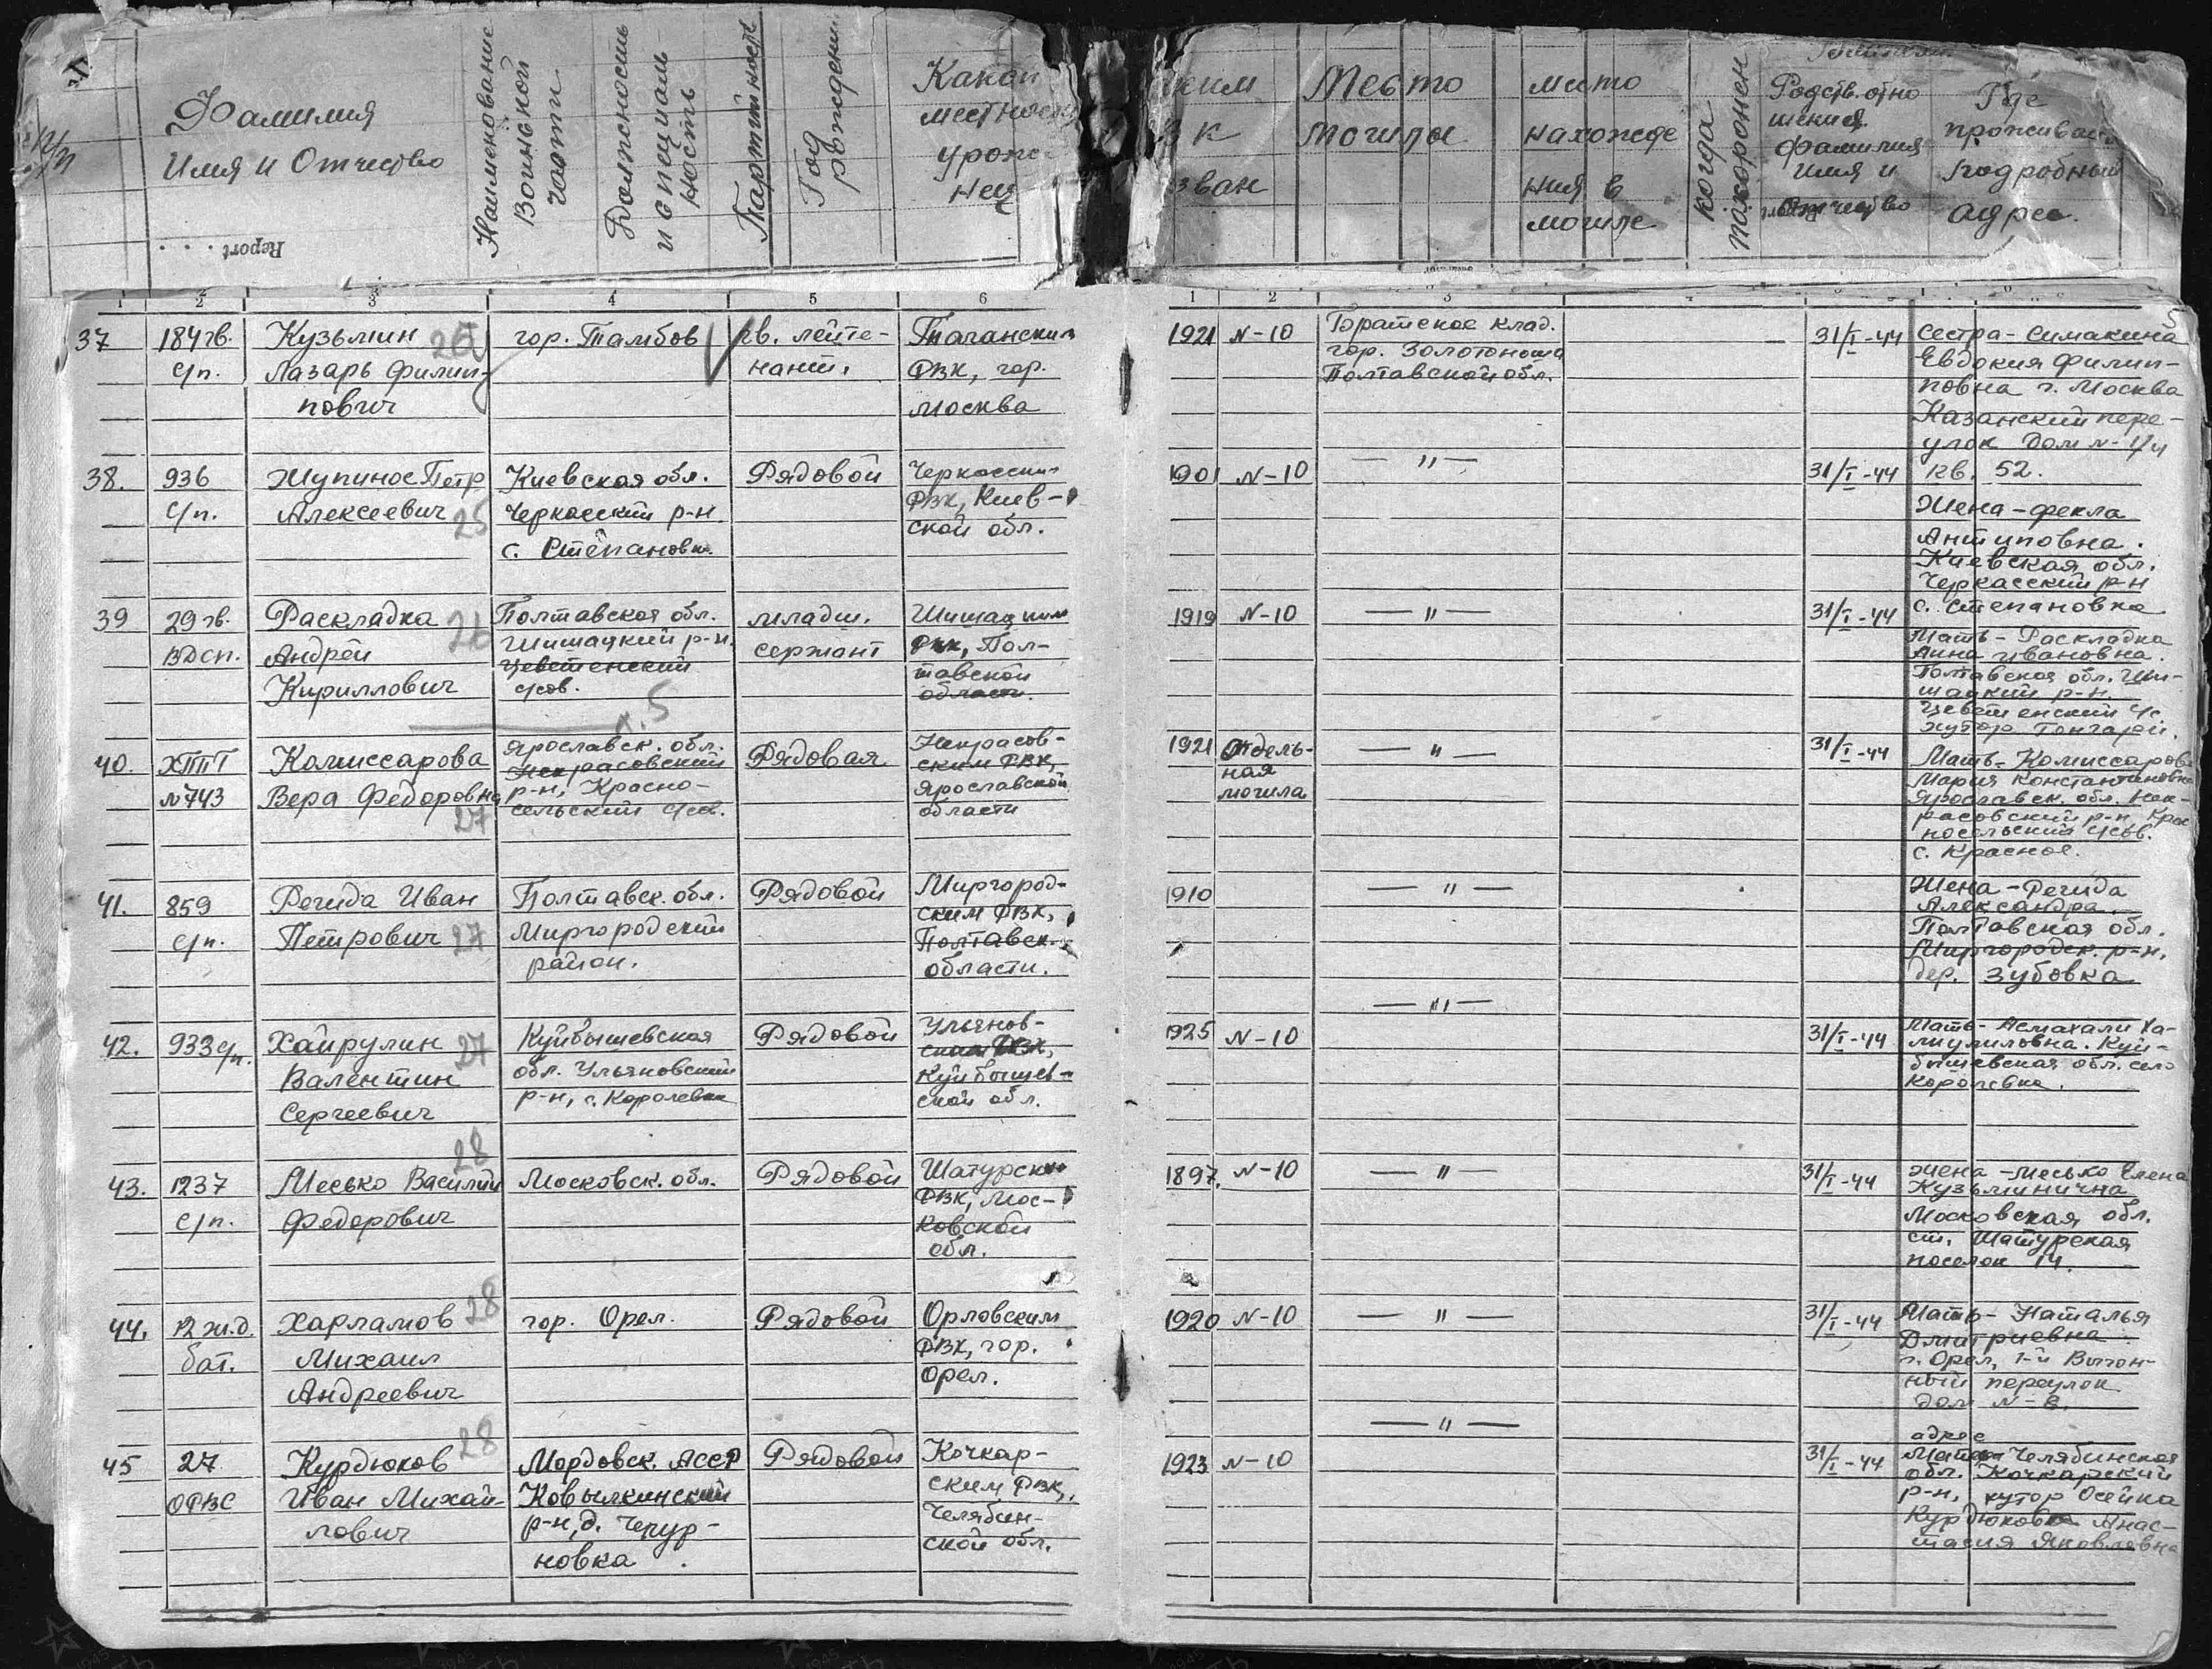 № п/п
Фамилия
Имя и Отчество
Наименование
Воинской
части
Должность
и специаль
ность
Партийность
Год
рождения
Какой
местности
уроже
нец
Report
ким
в к
зван
Место
могилы
место
нахожде
ния в
могиле
когда
похоронен
Родств. отно
шения
фамилия
имя и
отчество
Где
проживает
подробный
адрес.
1 2 3 4 5 6
1 2 3
5
37 184 гв. Кузьмин гор. Тамбов гв. лейте-
с/п. Лазарь Филип- нант.
пович
26
Таганским
РВК, гор.
Москва
1921 N-10 Братское клад.
гор. Золотоноша
Полтавской обл.
31/I-44 Сестра - Симакина
Евдокия Филип-
повна г. Москва
Казанский пере-
улок дом N-
кв. 52.
38. 936 Жупинос Петр Киевская обл. Рядовой
с/п. Алексеевич 25 Черкасский р-н.
с. Степановк.
Черкасским
РВК, Киев-
ской обл.
1901 N-10 — " — 31/I-44
Жена - Фекла
Антиповна.
Киевская обл.
Черкасский р-н
с. Степановка
39 29 гв. Раскладка 26 Полтавская обл. младш.
ВДСП. Андрей Шишацкий р-н. сержант
Кириллович
с/сов.
Шишацким
РВК, Пол-
тавской
области.
1919 N-10 — " — 31/I-44
Мать - Раскладка
Анна Ивановна.
Полтавская обл. Ши-
шацкий р-н.
хутор Гончарей.
х. 5
40. ХППГ Комиссарова Ярославск. обл. Рядовая
№743 Вера Федоровна Некрасовский
27 р-н, Красно-
сельский с/сов.
Некрасов-
ским РВК,
Ярославской
области
1921 Отдель- — " — 31/I-44
ная
могила
Мать - Комиссарова
Мария Константиновна
Ярославск. обл. Нек-
расовский р-н, Крас
носельский с/сов.
с. Красное.
41. 859 Регида Иван Полтавск. обл. Рядовой
с/п. Петрович 27 Миргородский
район.
Миргород-
ским РВК,
Полтавск.
области.
1910 — " —
Жена - Регида
Александра.
Полтавская обл.
Миргородск. р-н.
дер. Зубовка
42. 933 с/п. Хайрулин 27 Куйбышевская Рядовой
Валентин обл. Ульяновский
Сергеевич р-н, с. Королевка
Ульянов-
ским РВК,
Куйбышев-
ской обл.
— " —
1925 N-10 31/I-44
Мать - Асмахали Ха-
лиулиловна. Куй-
бышевская обл. село
Королевка.
28
43. 1237 Месько Василий Московск. обл. Рядовой
с/п. Федорович
Шатурским
РВК, Мос-
ковской
обл.
1897. N-10 — " — 31/I-44
Жена - Месько Елена
Кузьминична
Московская обл.
ст. Шатурская
поселок 14.
44. 12 ж.д. Харламов 28 гор. Орел. Рядовой
бат. Михаил
Андреевич
Орловским
РВК, гор.
Орел.
1920 N-10 — " — 31/I-44
Мать - Наталья
Дмитриевна.
г. Орел, 1-й Выгон-
ный переулок
дом N-
45 27 Курдюков 28 Мордовск. АССР Рядовой
ОРВС Иван Михай- Ковылкинский
лович р-н, д. Чепур-
новка.
Кочкар-
ским РВК,
Челябин-
ской обл.
— " —
1923 N-10 31/I-44
адрес
Матери Челябинская
обл. Кочкарский
р-н, хутор Осейка
Курдюкова Анас-
тасия Яковлевна